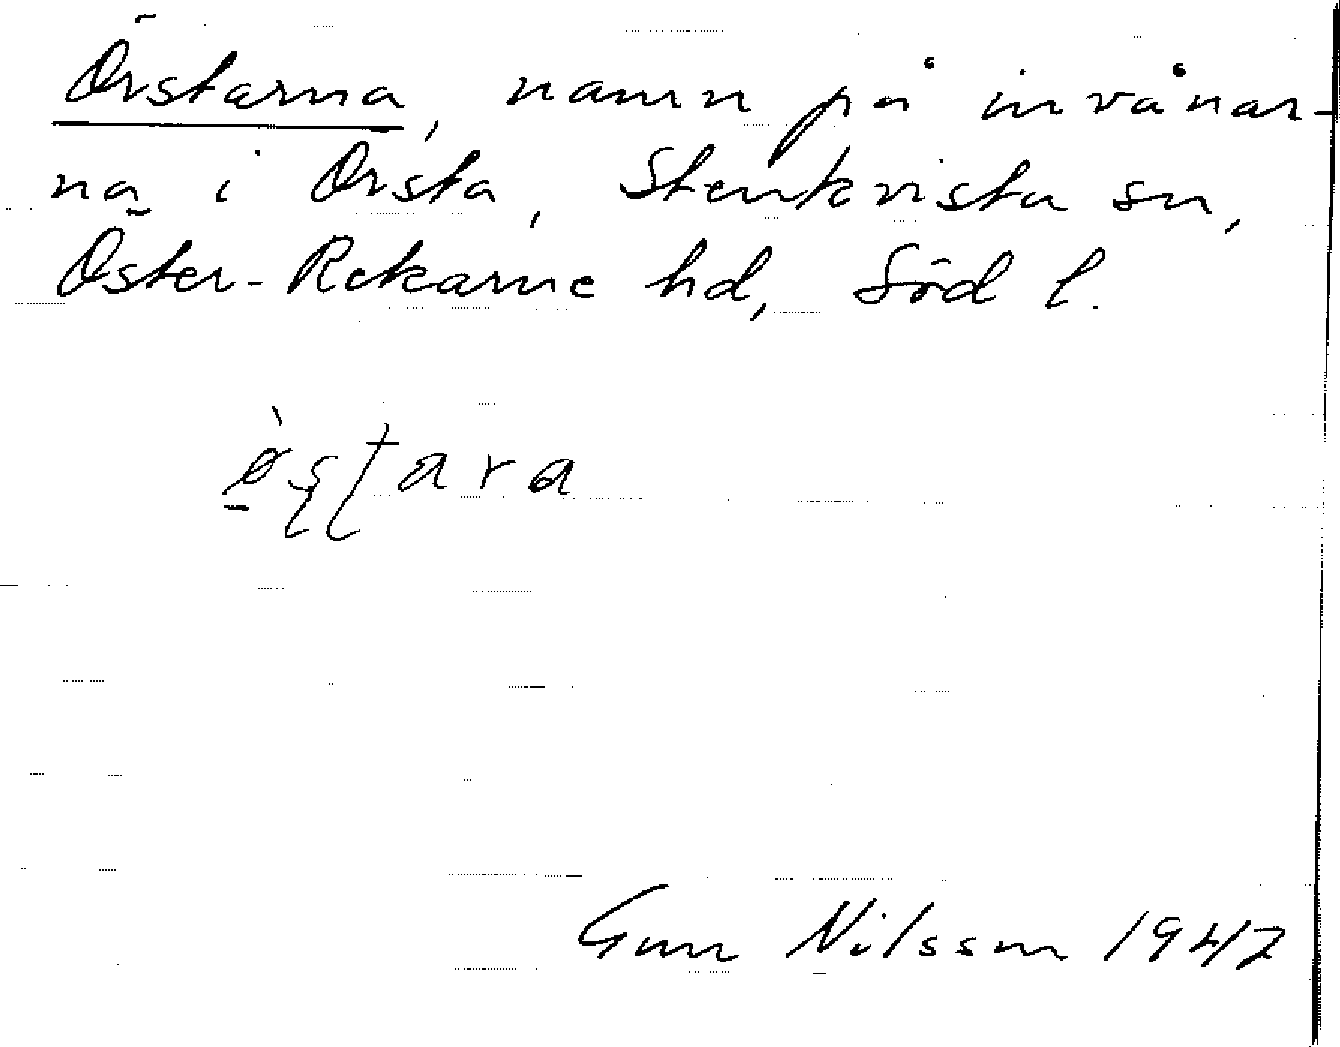 Örstarna, namn på invånar-
na i Örsta, Stenkvista sn,
Öster-Rekarne hd, Söd l.
Gun Nilsson 1947